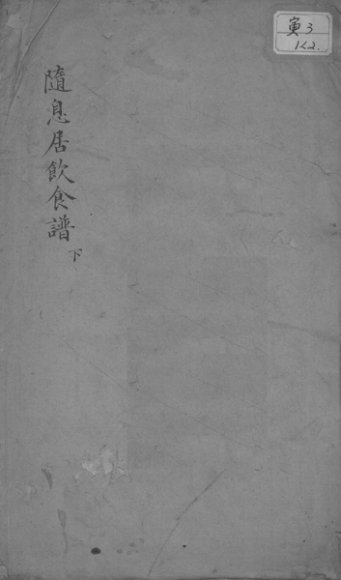 隨息居飲食譜
下
寅3